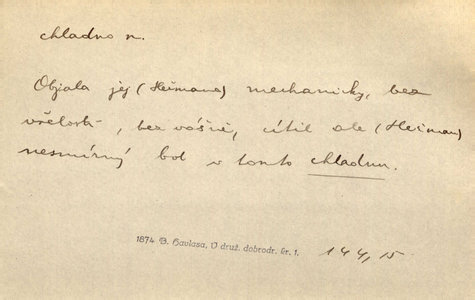 chladno n.
Objala jej (Heřmana) mechanicky, bez
vřelosti, bez vášně, cítil ale (Heřman)
nesmírný bol v tomto chladnu.
1874 B. Havlasa, V druž. dobrodr. kr. 1. 144, 15